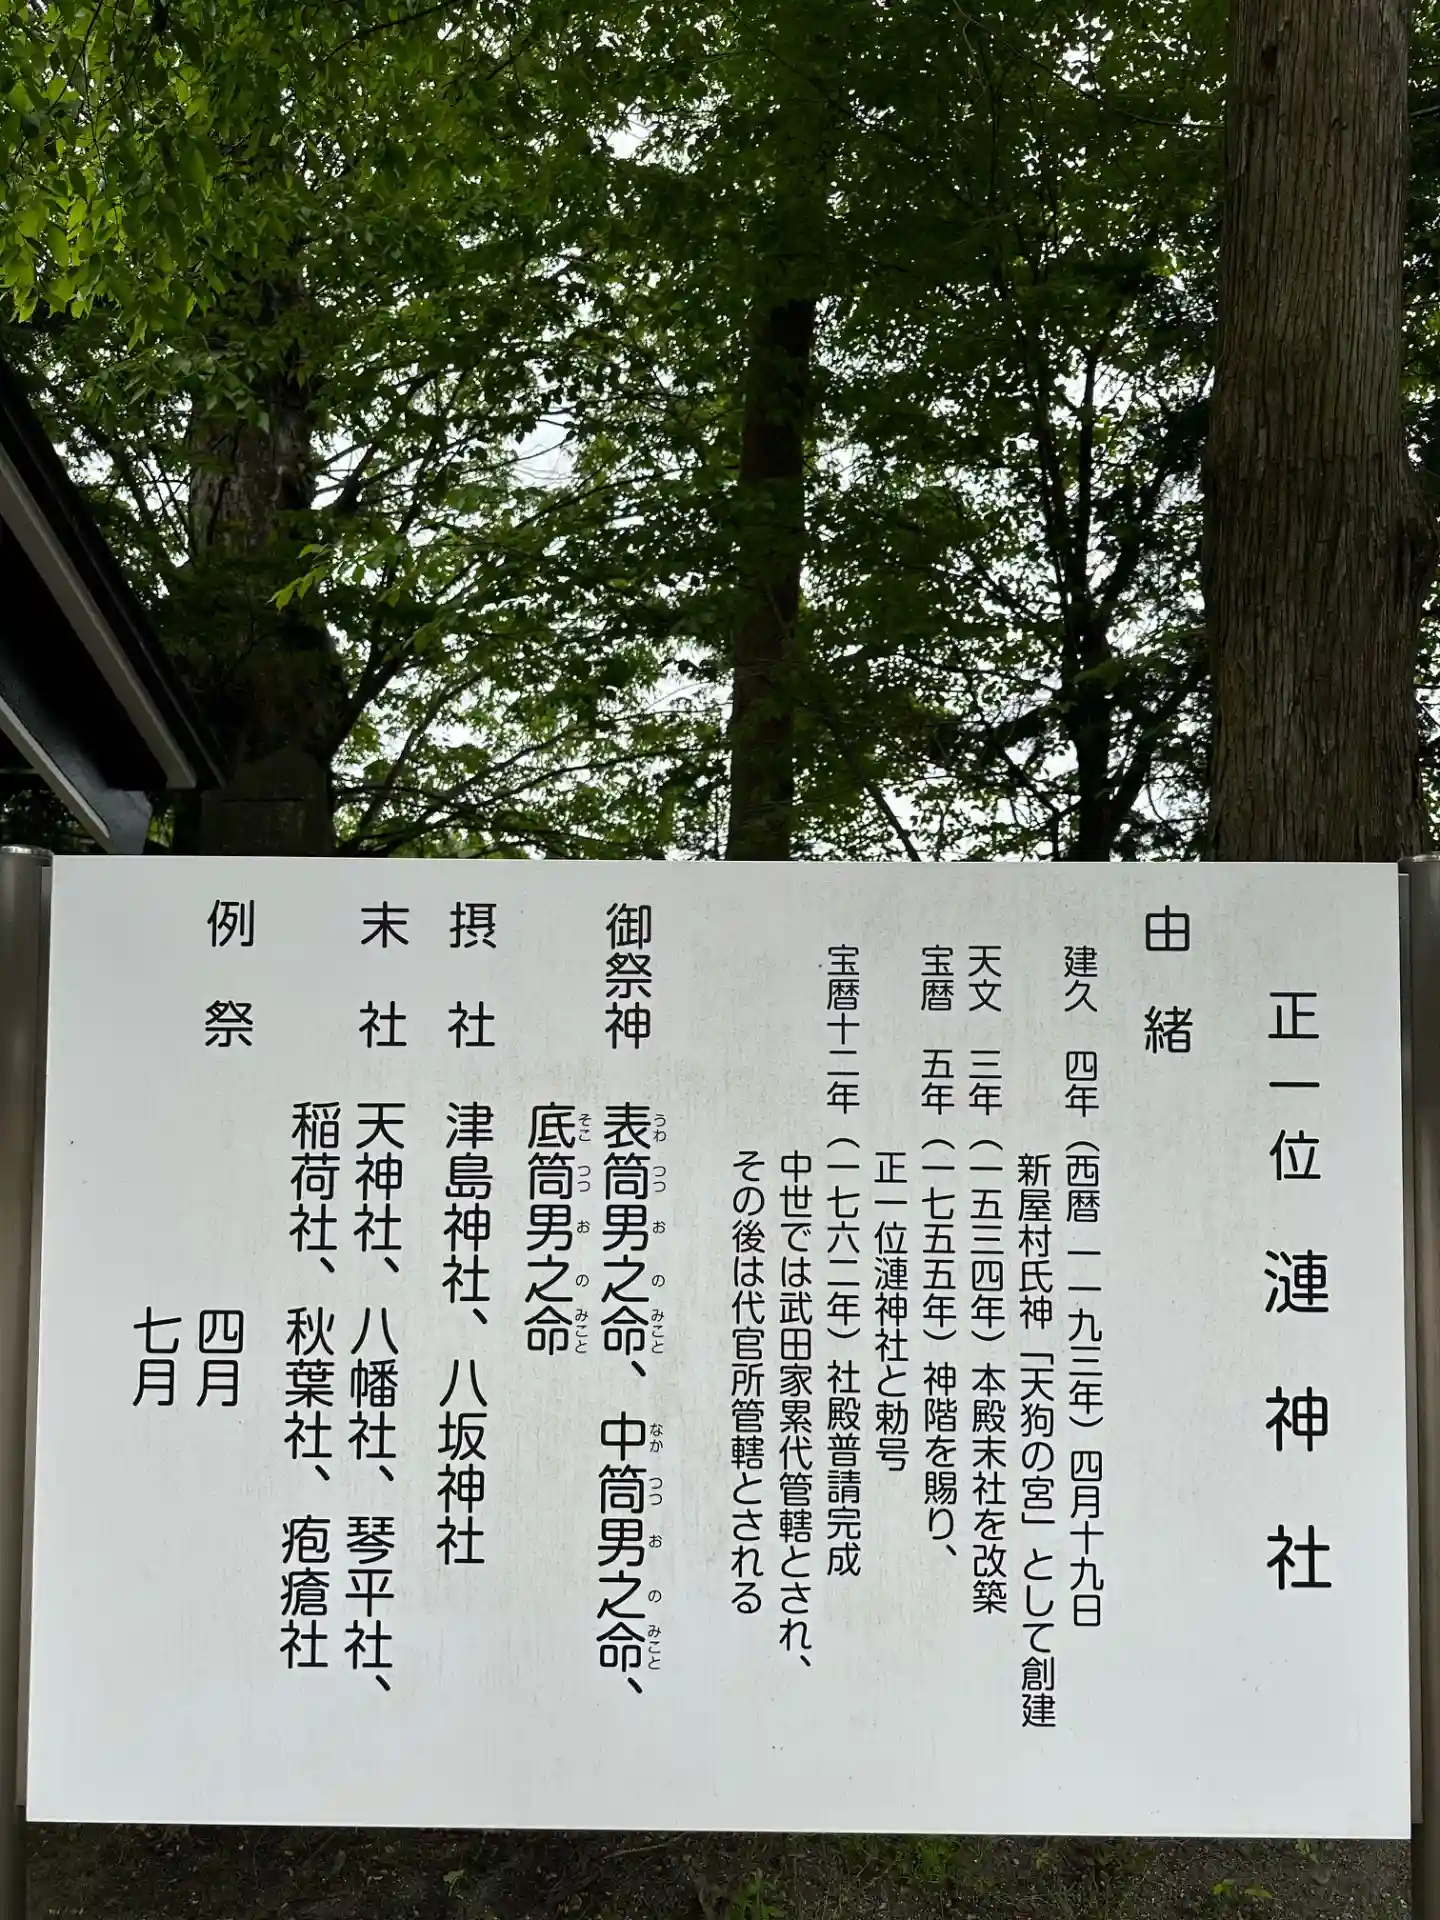 正一位 漣神社
由緒
建久 四年(西暦一一九三年)四月十九日
新屋村氏神「天狗の宮」として創建
天文 三年(一五三四年)本殿末社を改築
宝暦 五年(一七五五年)神階を賜り、
正一位漣神社と勅号
宝暦十二年(一七六二年)社殿普請完成
中世では武田家累代管轄とされ、
その後は代官所管轄とされる
御祭神 表筒男之命、中筒男之命、
うわ つつ お の みこと なか つつ お の みこと
底筒男之命
そこ つつ お の みこと
摂社 津島神社、八坂神社
末社 天神社、八幡社、琴平社、
稲荷社、秋葉社、疱瘡社
例祭 四月
七月